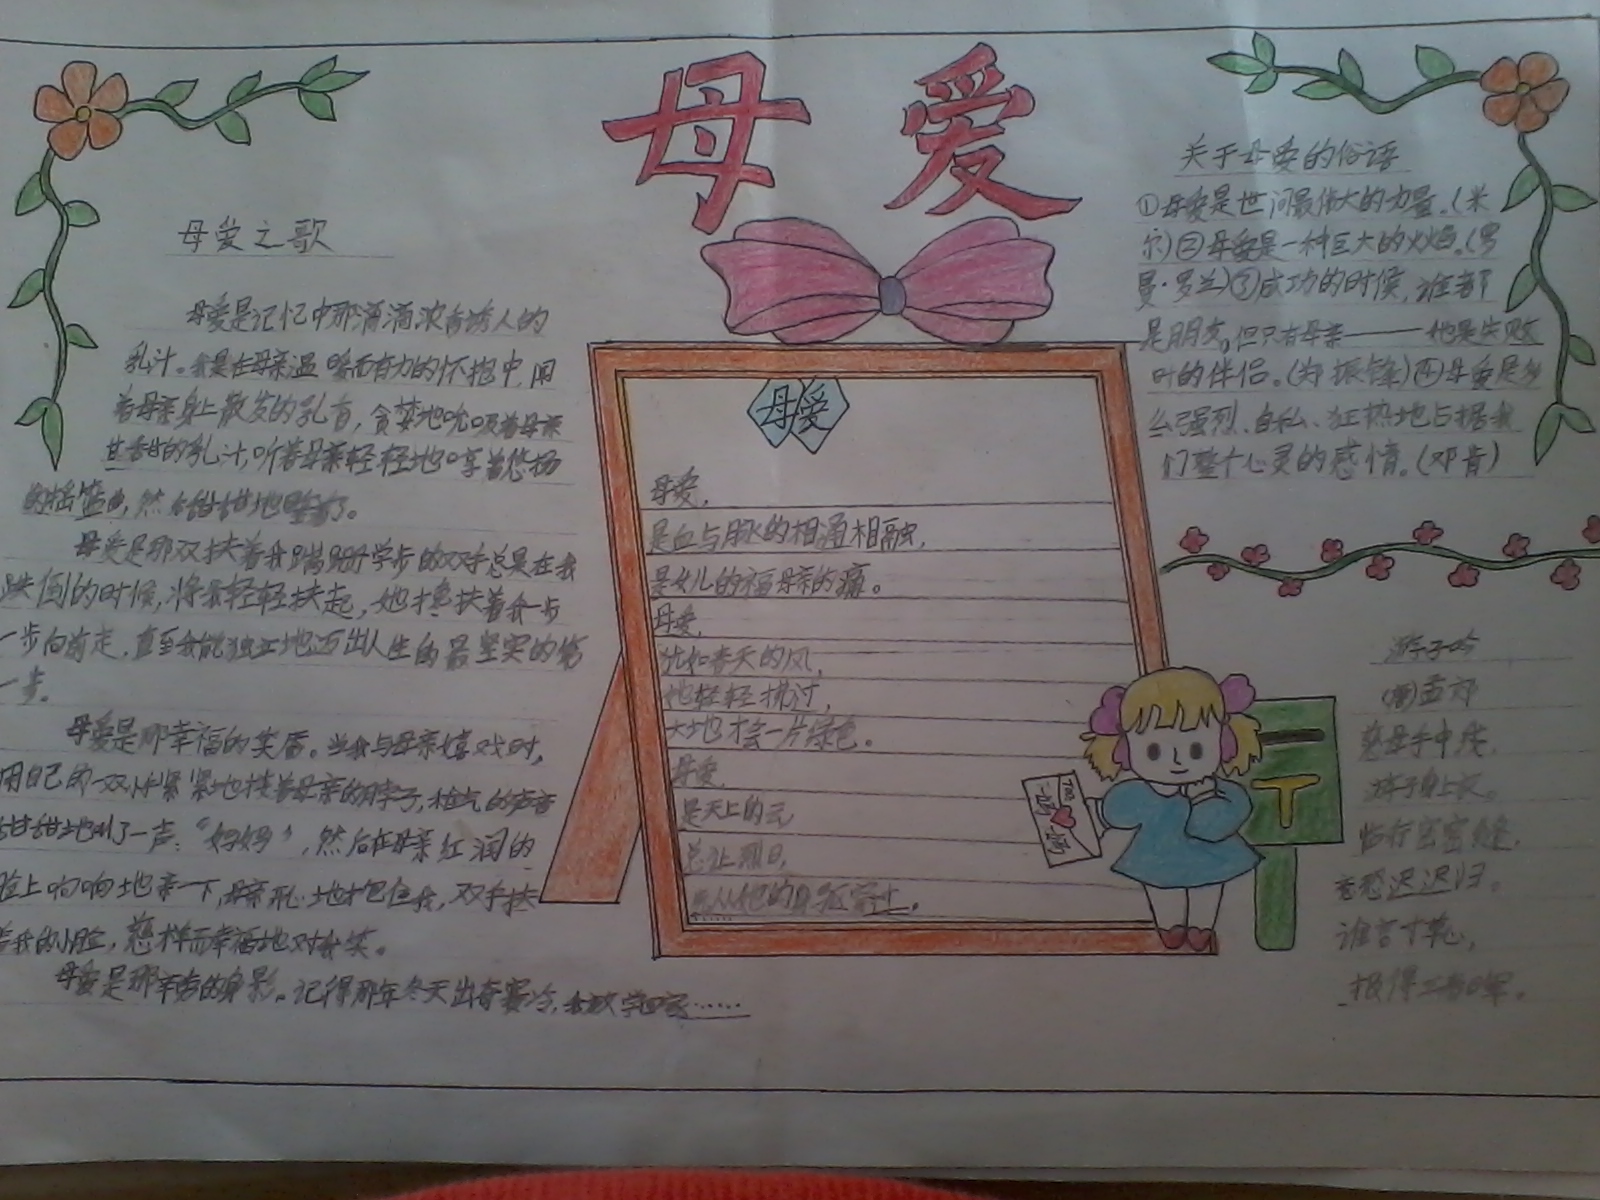 母爱
母爱之歌
母爱是记忆中那滴滴浓香诱人的
乳汁。我是在母亲温暖而有力的怀抱中,闻
着母亲身上散发的乳香,贪婪地吮吸着母亲
甘甜的乳汁,听着母亲轻轻地哼着悠扬
的摇篮曲,然后甜甜地睡着了。
母爱是那双扶着我蹒跚学步的双手总是在我
跌倒的时候,将我轻轻扶起,她搀扶着我一步
一步向前走,直至我能独立地迈出人生的最坚实的第
一步。
母爱是那幸福的笑唇。当我与母亲嬉戏时,
用自己的一双小手紧紧地扶着母亲的脖子,稚气的声音
甜甜地叫了一声:“妈妈”,然后在母亲红润的
脸上响响地亲一下,母亲开心地抱住我,双手扶
着我的小脸,慈祥而幸福地对我笑。
母爱是那辛劳的身影。记得那年冬天出奇寒冷,我放学回家……
母爱
母爱,
是血与脉的相通相融,
是女儿的福母亲的痛。
母爱,
犹如春天的风,
她轻轻拂过,
大地才会一片绿色。
母爱,
是天上的云
总让烈日,
先从她的身躯穿过。
……
关于母爱的俗语
①母爱是世间最伟大的力量。(米
尔)②母爱是一种巨大的火焰。(罗
曼·罗兰)③成功的时候,谁都
是朋友。但只有母亲——他是失败
时的伴侣。(郑振铎)④母爱是多
么强烈、自私、狂热地占据我
们整个心灵的感情。(邓肯)
游子吟
(唐)孟郊
慈母手中线,
游子身上衣。
临行密密缝,
意恐迟迟归。
谁言寸草心,
报得三春晖。